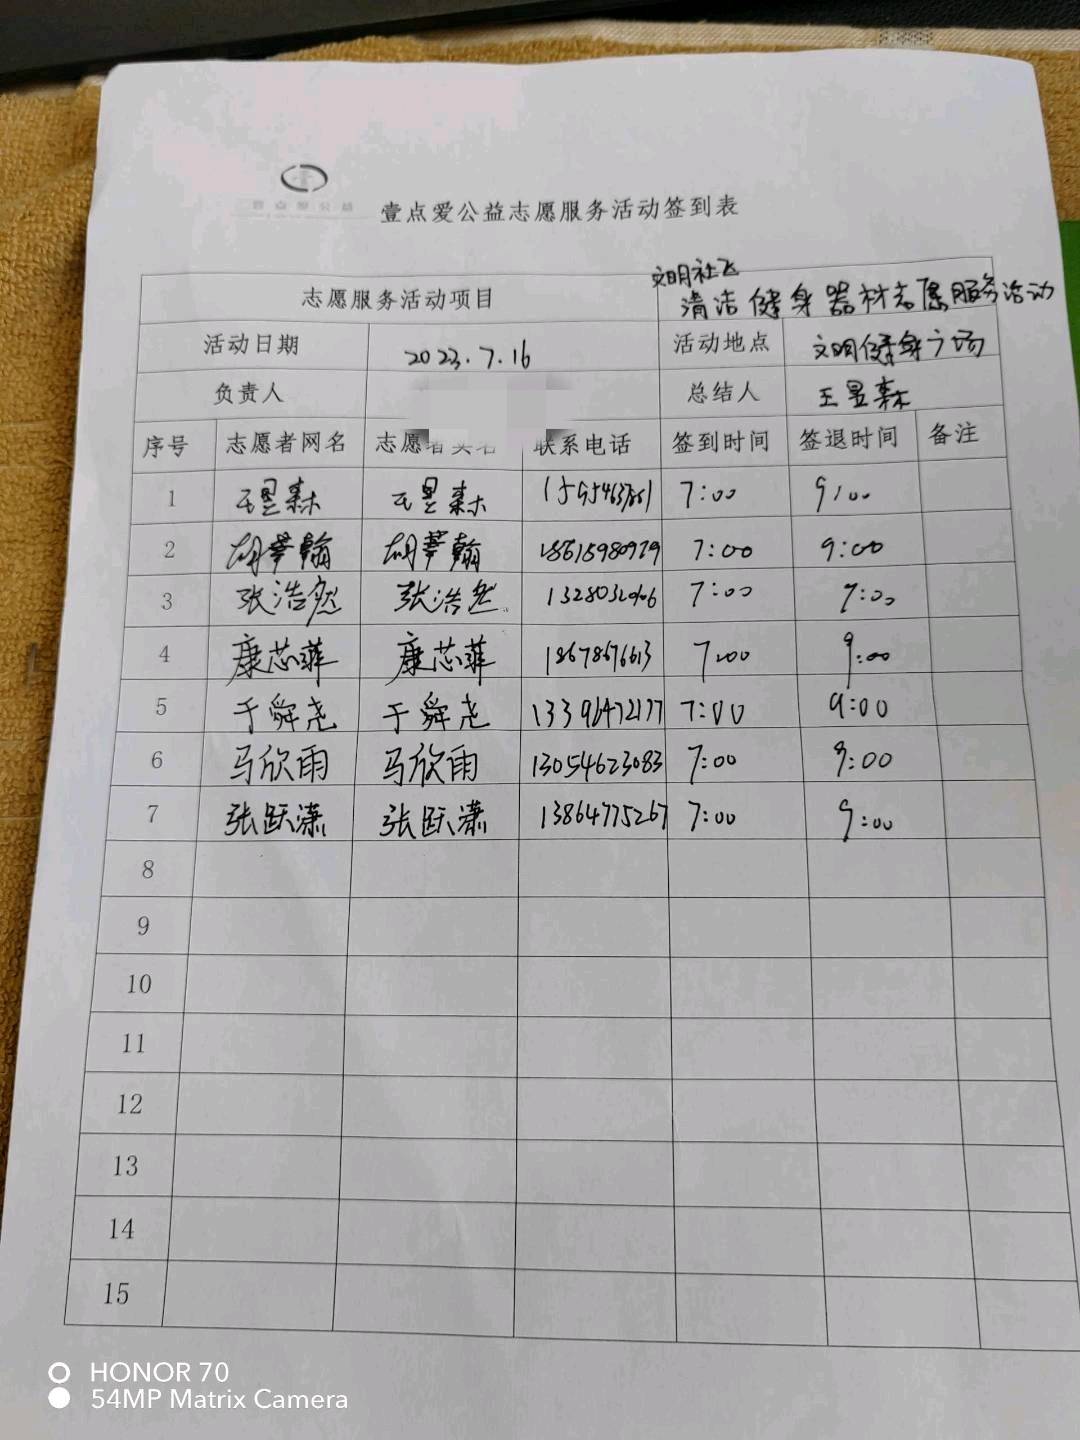 壹点爱公益志愿服务活动签到表
志愿服务活动项目 文明社区
清洁健身器材志愿服务活动
活动日期 2023.7.16 活动地点 文明健身广场
负责人 总结人 王昱森
序号 志愿者网名 志愿者实名 联系电话 签到时间 签退时间 备注
1 王昱森 王昱森 7:00 9:00
2 胡荸翰 胡荸翰 7:00 9:00
3 张浩然 张浩然 7:00 9:00
4 康芯菲 康芯菲 18678676613 7:00 9:00
5 于舜尧 于舜尧 13396472177 7:00 9:00
6 马欣雨 马欣雨 13054623083 7:00 9:00
7 张跃潇 张跃潇 13864775267 7:00 9:00
8
9
10
11
12
13
14
15
HONOR 70
54MP Matrix Camera